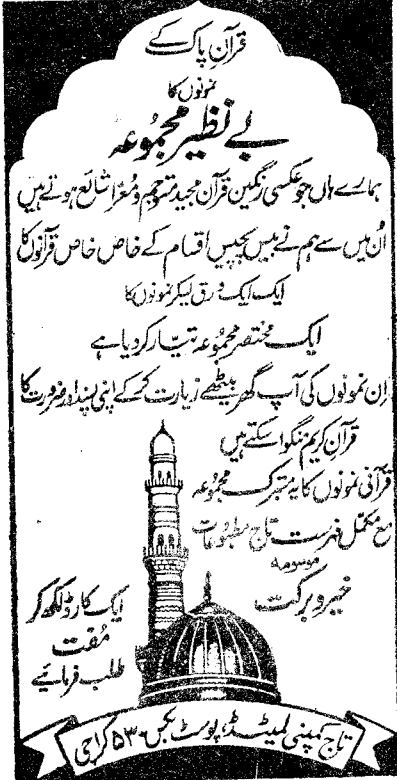 قرآنِ پاک کے
نمونوں کا
بے نظیر مجموعہ
ہمارے ہاں جو عکسی رنگین قرآن مجید مترجم و معرا شائع ہوتے ہیں
اُن میں سے ہم نے بیس پچیس اقسام کے خاص خاص قرآنوں کا
ایک ایک ورق لیکر نمونوں کا
ایک مختصر مجموعہ تیار کر دیا ہے
اِن نمونوں کی آپ گھر بیٹھے زیارت کرکے اپنی پسند اور ضرورت کا
قرآنِ کریم منگوا سکتے ہیں
قرآنی نمونوں کا یہ متبرک مجموعہ
مع مکمل فہرست تاج مطبوعات
موسومہ
خیر و برکت
ایک کارڈ لکھ کر
مُفت
طلب فرمائیے
تاج کمپنی لمیٹڈ، پوسٹ بکس ۵۳۰ کراچی